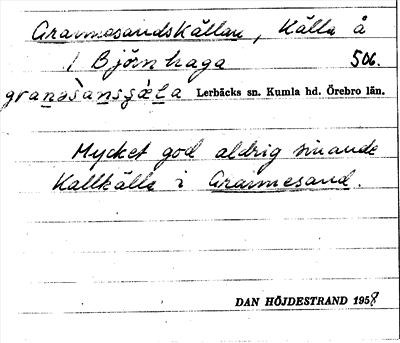 Grannesandskällan, Källa å
1 Björnhaga 506.
granəsànsɟǽla Lerbäcks sn. Kumla hd. Örebro län.
Mycket god aldrig sinande
Kallkälla i Grannesand.
DAN HÖJDESTRAND 1958